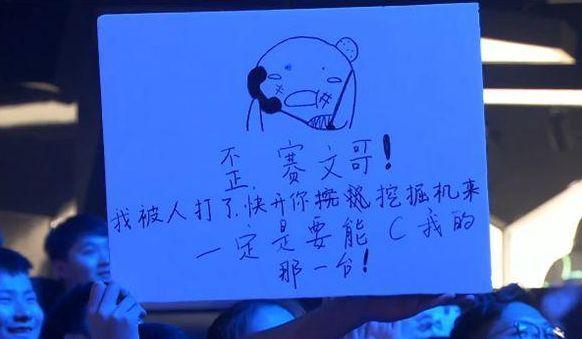 歪,赛文哥!
我被人打了,快开你挖掘机来
一定是要能C我的
那一台!